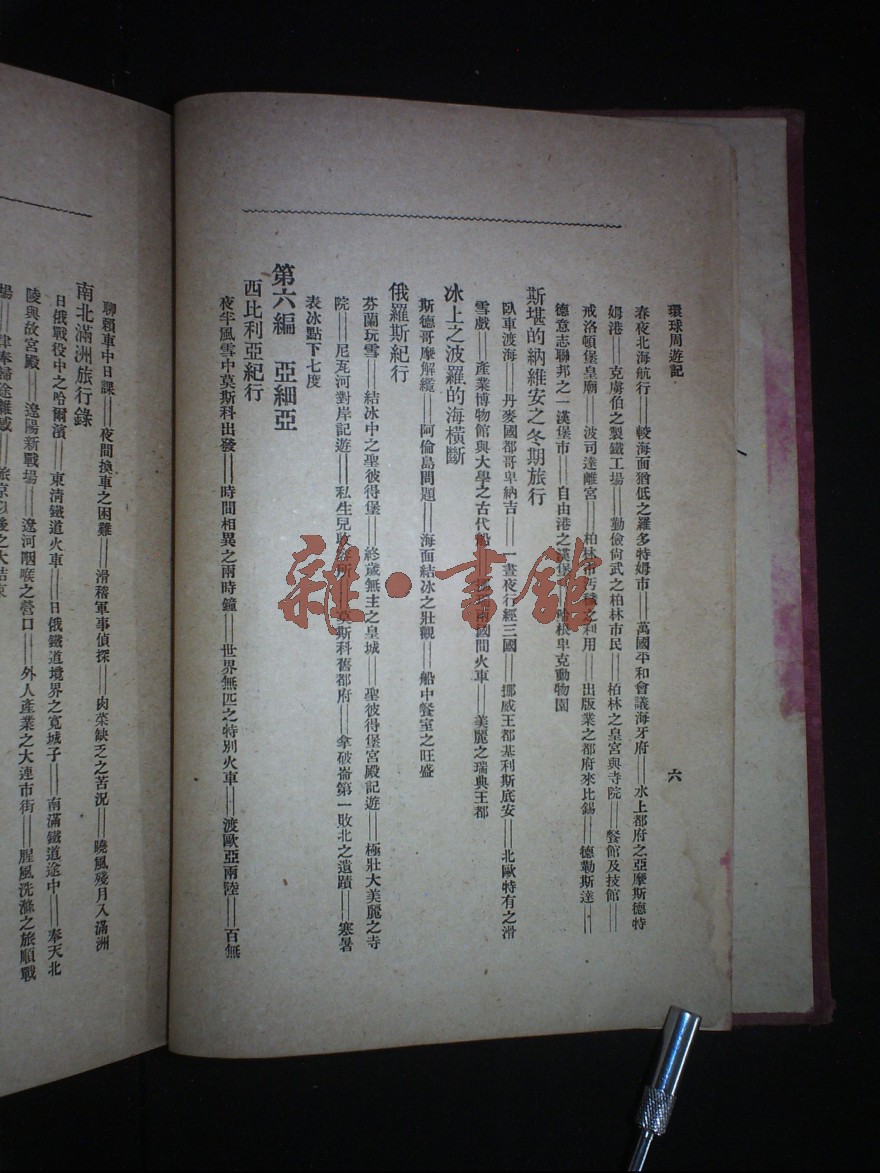 環球周遊記
六
春夜北海航行——較海面猶低之羅多特姆市——萬國平和會議海牙府——水上都府之亞摩斯德特
姆港——克虜伯之製鐵工場——勤儉尙武之柏林市民——柏林之皇宮與寺院——餐館及技館——
戒洛頓堡皇廟——波司達離宮——柏林市汚穢之利用——出版業之都府來比錫——德勒斯達——
德意志聯邦之一漢堡市——自由港之漢堡——哈根卑克動物園
斯堪的納維安之冬期旅行
臥車渡海——丹麥國都哥卑納吉——一晝夜行經三國——挪威王都基利斯底安——北歐特有之滑
雪戲——產業博物館與大學之古代船——兩國間火車——美麗之瑞典王都
冰上之波羅的海橫斷
斯德哥摩解纜——阿倫島問題——海面結冰之壯觀——船中餐室之旺盛
俄羅斯紀行
芬蘭玩雪——結冰中之聖彼得堡——終歲無主之皇城——聖彼得堡宮殿記遊——極壯大美麗之寺
院——尼瓦河對岸記遊——私生兒收容所——莫斯科舊都府——拿破崙第一敗北之遺蹟——寒暑
表冰點下七度
第六編 亞細亞
西比利亞紀行
夜半風雪中莫斯科出發——時間相異之兩時鐘——世界無匹之特別火車——渡歐亞兩陸——百無
聊賴車中日課——夜間換車之困難——滑稽軍事偵探——肉菜缺乏之苦況——曉風殘月入滿洲
南北滿洲旅行錄
日俄戰役中之哈爾濱——東清鐵道火車——日俄鐵道境界之寬城子——南滿鐵道途中——奉天北
陵與故宮殿——遼陽新戰場——遼河咽喉之營口——外人產業之大連市街——腥風洗滌之旅順戰
場——津奉歸途雜感——旅京以後之大結束
雜·書館